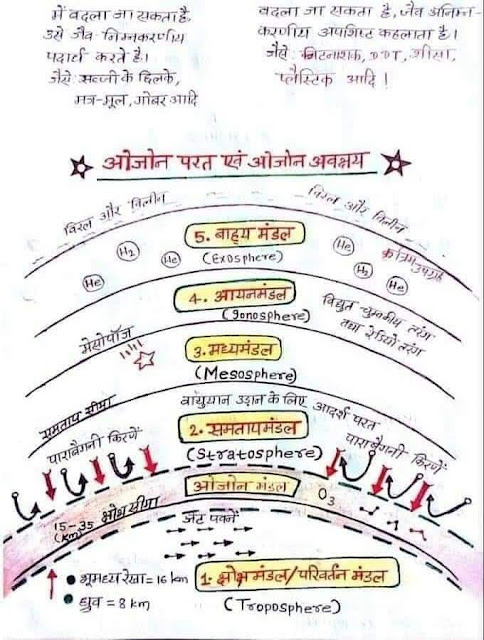 में बदला जा सकता है,
उसे जैव निम्नकरणीय
पदार्थ करते है।
जैसे: सब्जी के छिलके,
मत्र-मूल, गोबर आदि
बदला जा सकता है, जैव अनिम्न-
करणीय अपशिष्ट कहलाता है।
जैसे: किटनाशक, DDT, शीसा,
प्लैस्टिक आदि !
ओजोन परत एवं ओजोन अवक्षय
विरल और विलीन
विरल और विलीन
5. बाह्य मंडल
(Exosphere)
He
H₂
He
He
H₂
He
कृत्रिम उपग्रह
4. आयनमंडल
(Ionosphere)
विद्युत चुम्बकीय तरंग
तथा रेडियो तरंग
मेसोपॉज
3. मध्यमंडल
(Mesosphere)
समताप सीमा
वायुयान उड़ान के लिए आदर्श परत
2. समतापमंडल
(Stratosphere)
पाराबैगनी किरणें
पाराबैगनी किरणें
ओजोन मंडल
O₃
15-35
(km)
क्षोभ सीमा
जेट पवनें
भूमध्य रेखा = 16 km
ध्रुव = 8 km
1. क्षोभ मंडल/परिवर्तन मंडल
(Troposphere)